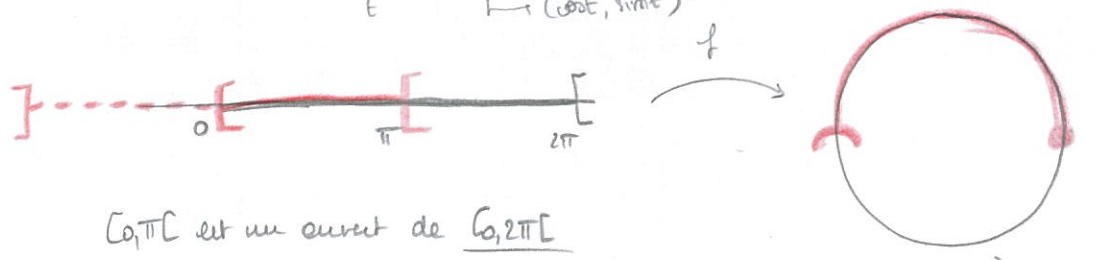 t ⟼ (cost, sint)
f
0 π 2π
[0,π[ est un ouvert de [0,2π[